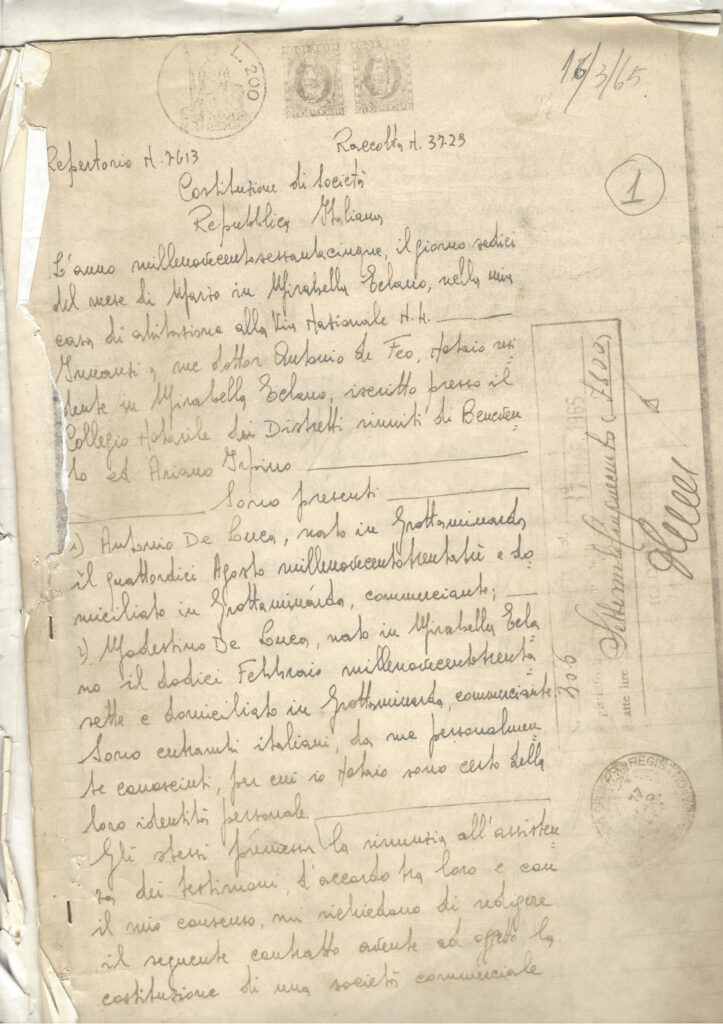 L. 200
16/3/65
Repertorio N. 7613
Raccolta N. 3729
1
Costituzione di Società
Repubblica Italiana
L'anno millenovecentosessantacinque, il giorno sedici
del mese di Marzo in Mirabella Eclano, nella mia
casa di abitazione alla Via Nazionale N.N.
Innanzi a me dottor Antonio de Feo, Notaio resi
dente in Mirabella Eclano, iscritto presso il
Collegio Notarile dei Distretti riuniti di Beneven=
to ed Ariano Irpino
Sono presenti
1) Antonio De Luca, nato in Grottaminarda
il quattordici Agosto millenovecentotrentatrè e do=
miciliato in Grottaminarda, commerciante;
2) Modestino De Luca, nato in Mirabella Ecla=
no il dodici Febbraio millenovecentotrenta=
sette e domiciliato in Grottaminarda, commerciante
Sono entrambi italiani, da me personalmen=
te conosciuti, per cui io Notaio sono certo della
loro identità personale.
Gli stessi premessa la rinunzia all'assisten=
za dei testimoni, d'accordo tra loro e con
il mio consenso, mi richiedono di redigere
il seguente contratto avente ad oggetto la
costituzione di una società commerciale
1965
306
atte lire
REGIS